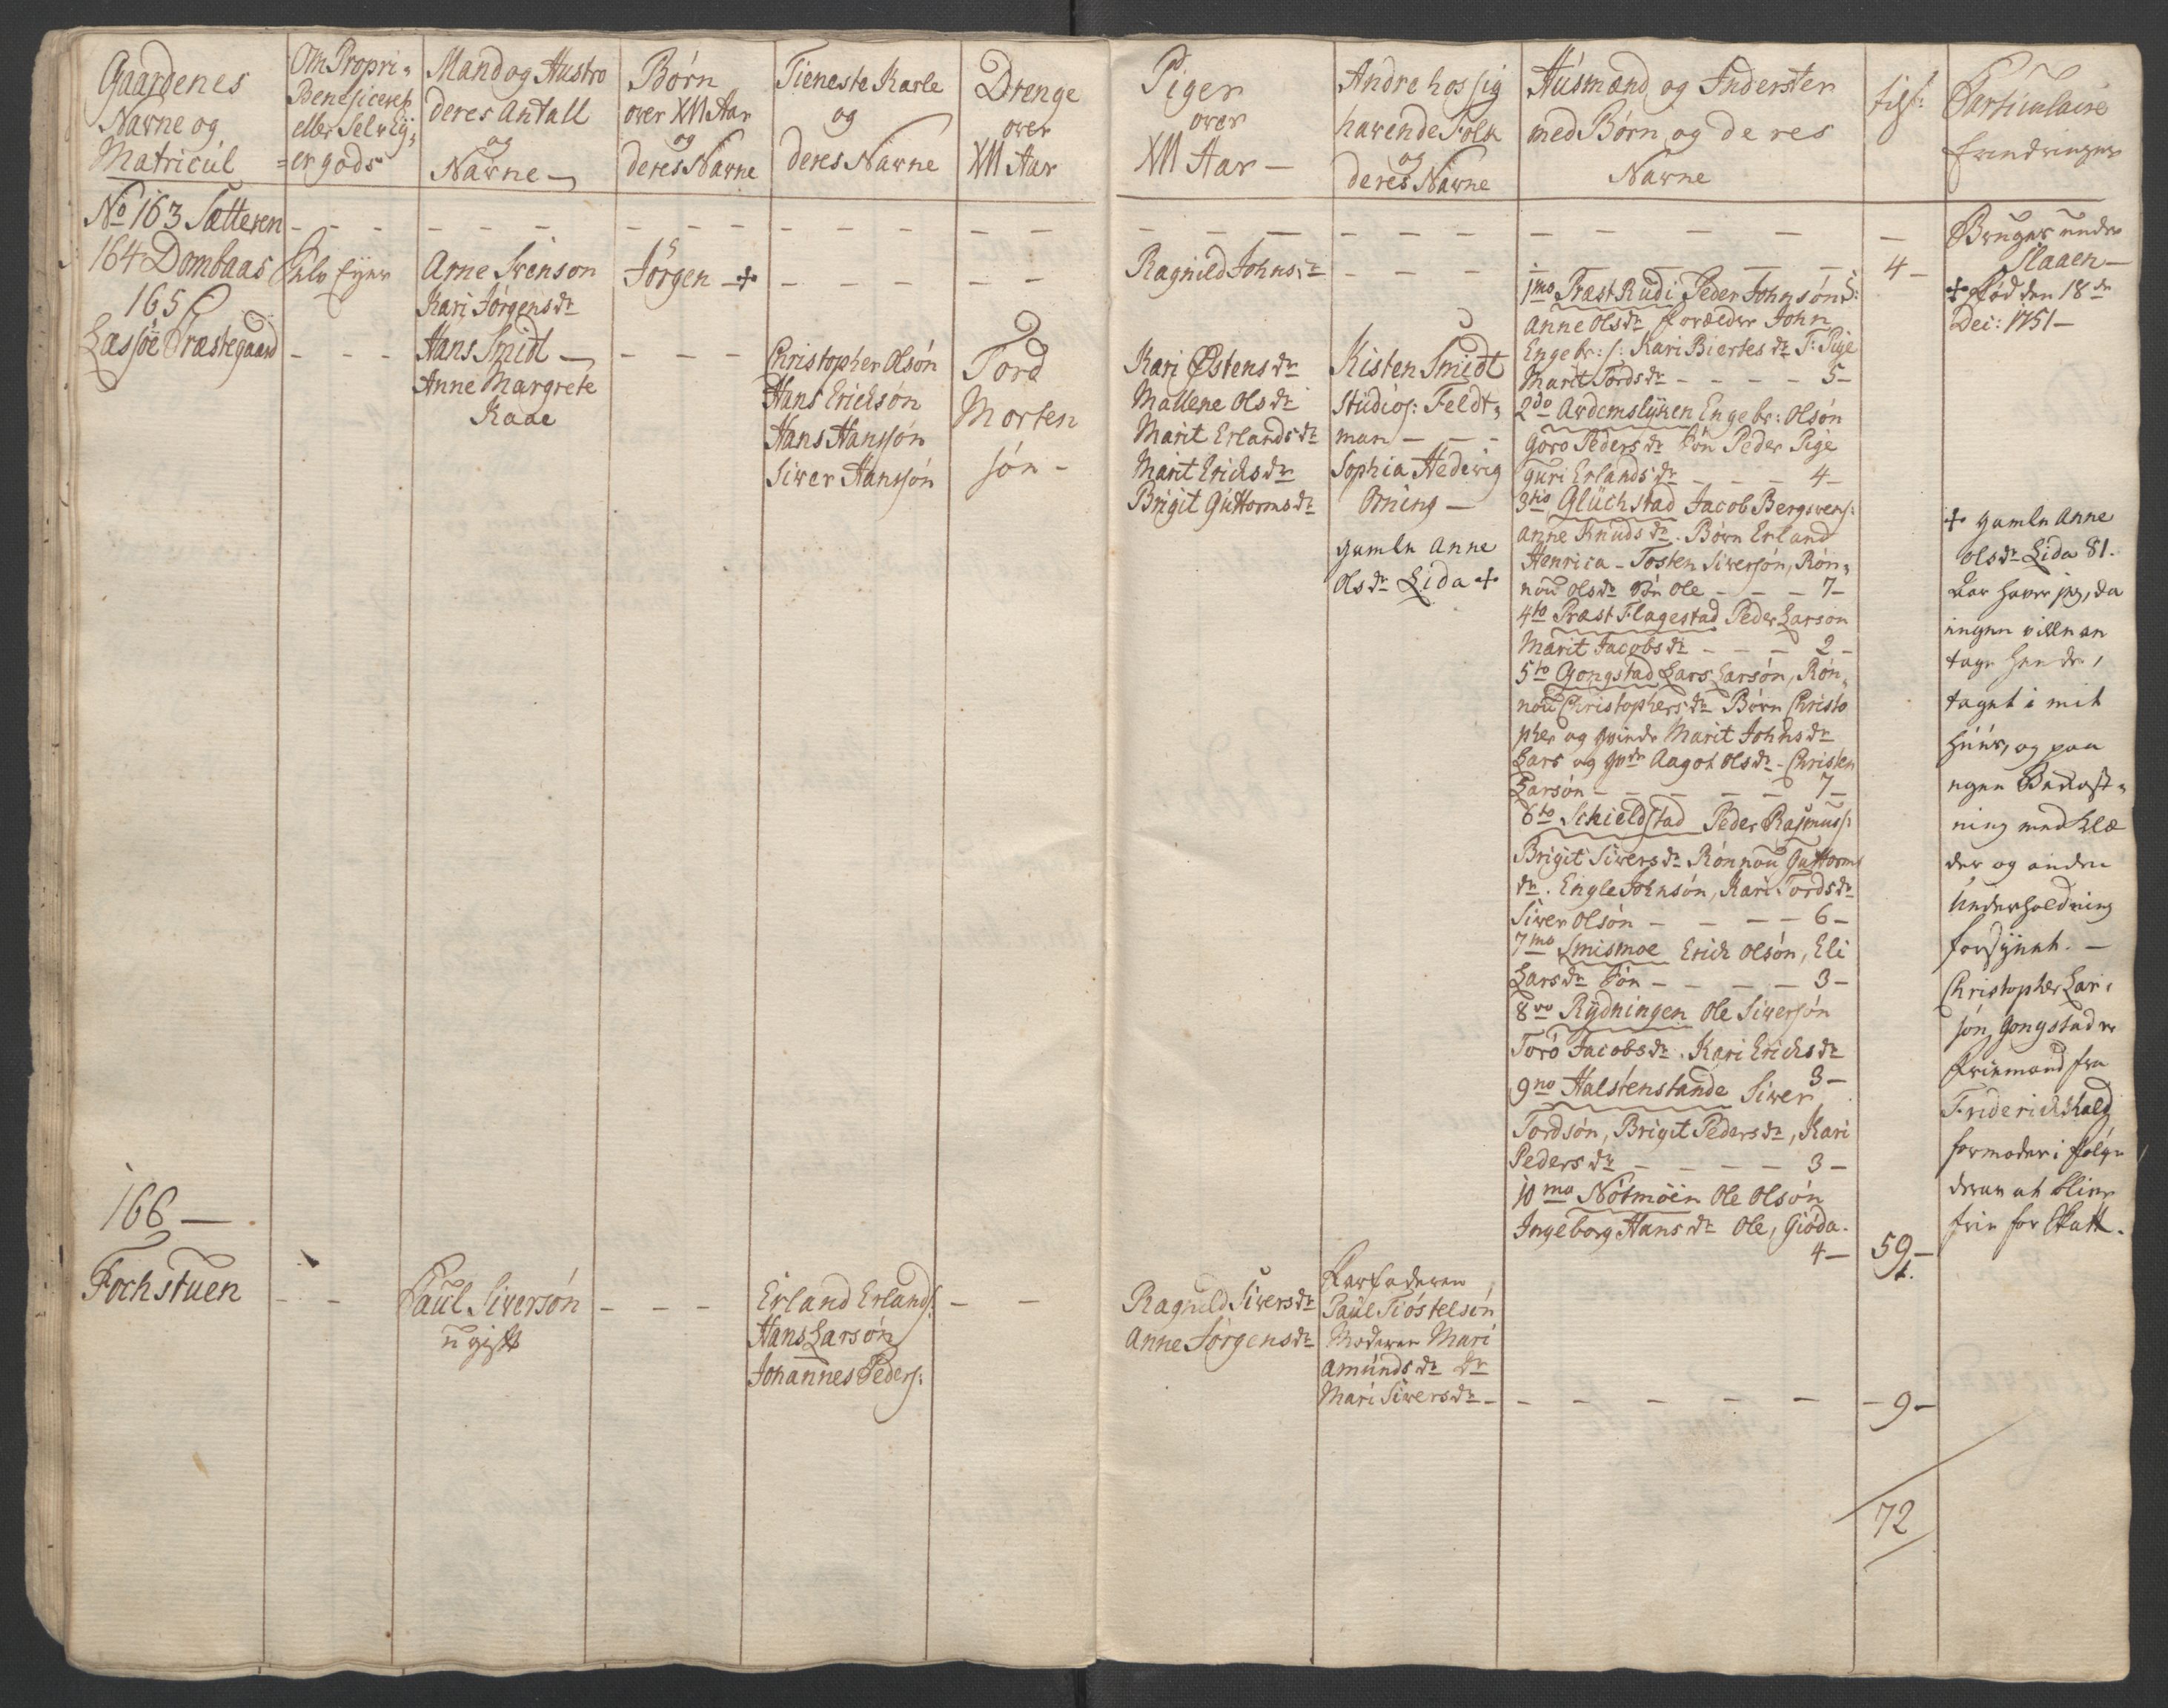 Gaardenes
Navne og
Matricul
Om Propri-
Beneficeret
eller Selv Ey-
er gods
Mand og Hustro
deres Antall
og
Navne
Børn
over XVI Aar
og
deres Navne
Tieneste Karle
og
deres Navne
Drenge
over
XVI Aar
Piger
over
XVI Aar
Andre hos sig
havende Folk
og
deres Navne
Huusmænd og Inderster
med Børn og deres
Navne
Particulaire
Erindringer
No 163 Sætteren
Bruges under
Slaaen
164 Dombaas
Selv Eyer
Arne Svenson
Kari Jørgensdr
Jørgen +
Ragnild Johnsdr
4
+ Fød den 18de
Dec: 1751
165
Læsjøe Præstegaard
Hans Smidt
Anne Margrete
Kaae
Christopher Olsøn
Hans Erichsøn
Hans Hansøn
Siver Hansøn
Tord
Morten
søn
Kari Østensdr
Mallene Olsdr
Marit Erlandsdr
Marit Erichsdr
Brigit Guttormsdr
Kisten Smidt
Studios: Feldt-
man
Sophia Hedevig
Orning
gamle Anne
Olsdr Lida +
1mo Præst Rudi Peder Johnsøn
Anne Olsdr Forælder John
Engebr: s: Kari Biertesdr T: Pige
Marit Tordsdr 5
2do Ardemslyken Engebr: Olsøn
Goro Pedersdr Søn Peder Pige
Guri Erlandsdr 4
3tio Glüchstad Jacob Bergsvens:
Anne Knudsdr. Børn Erland
Henrica - Tosten Siversøn, Røn-
nou Olsdr Søn Ole 7
4to Præst Flagestad Peder Larsøn
Marit Jacobsdr 2
5to Gongstad Lars Larsøn, Røn-
nou Christophersdr Børn Christo
pher og Qvinde Marit Johnsdr
Lars og Qvde Aagot Olsdr - Christen
Larsøn 7
6to Schieldstad Peder Rasmuss:
Brigit Siversdr Rønnou Guttorms
dr. Engle Johnsøn, Kari Tordsdr
Siver Olsøn 6
7mo Smismoe Erich Olsøn, Eli
Larsdr Søn 3
8vo Rydningen Ole Siversøn
Toro Jacobsdr. Kari Erichsdr
3
9no Halstenstande Siver
Tordsøn, Brigit Pedersdr, Kari
Pedersdr 3
10mo Nøsmöen Ole Olsøn
Ingeborg Hansdr Ole, Gioda.
4
59
+ gamle Anne
Olsdr Lida 81.
Aar haver jeg, da
ingen ville an
tage hende,
taget i mit
Huus, og paa
egen Bekost-
ning med Klæ
der og anden
Underholdning
forsynet.
Christopher Lar-
søn Gongstad er
Friemand fra
Friderichshald
formoder i følge
deraf at blive
frie for Skatt.
166
Fochstuen
Paul Siversøn
ugift
Erland Erlands:
Hans Larsøn
Johannes Peders:
Ragnild Siversdr
Anne Jørgensdr
Farfaderen
Paul Tiostelsøn
Moderen Mari
Amundsdr Dr
Mari Siversdr
9
72